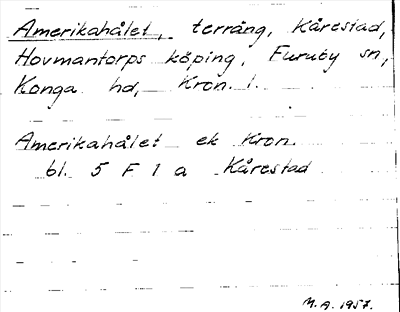 Amerikahålet, terräng, Kårestad,
Hovmantorps köping, Furuby sn,
Konga hd, Kron. l.
Amerikahålet ek Kron.
bl. 5 F 1 a Kårestad
M.A. 1957.